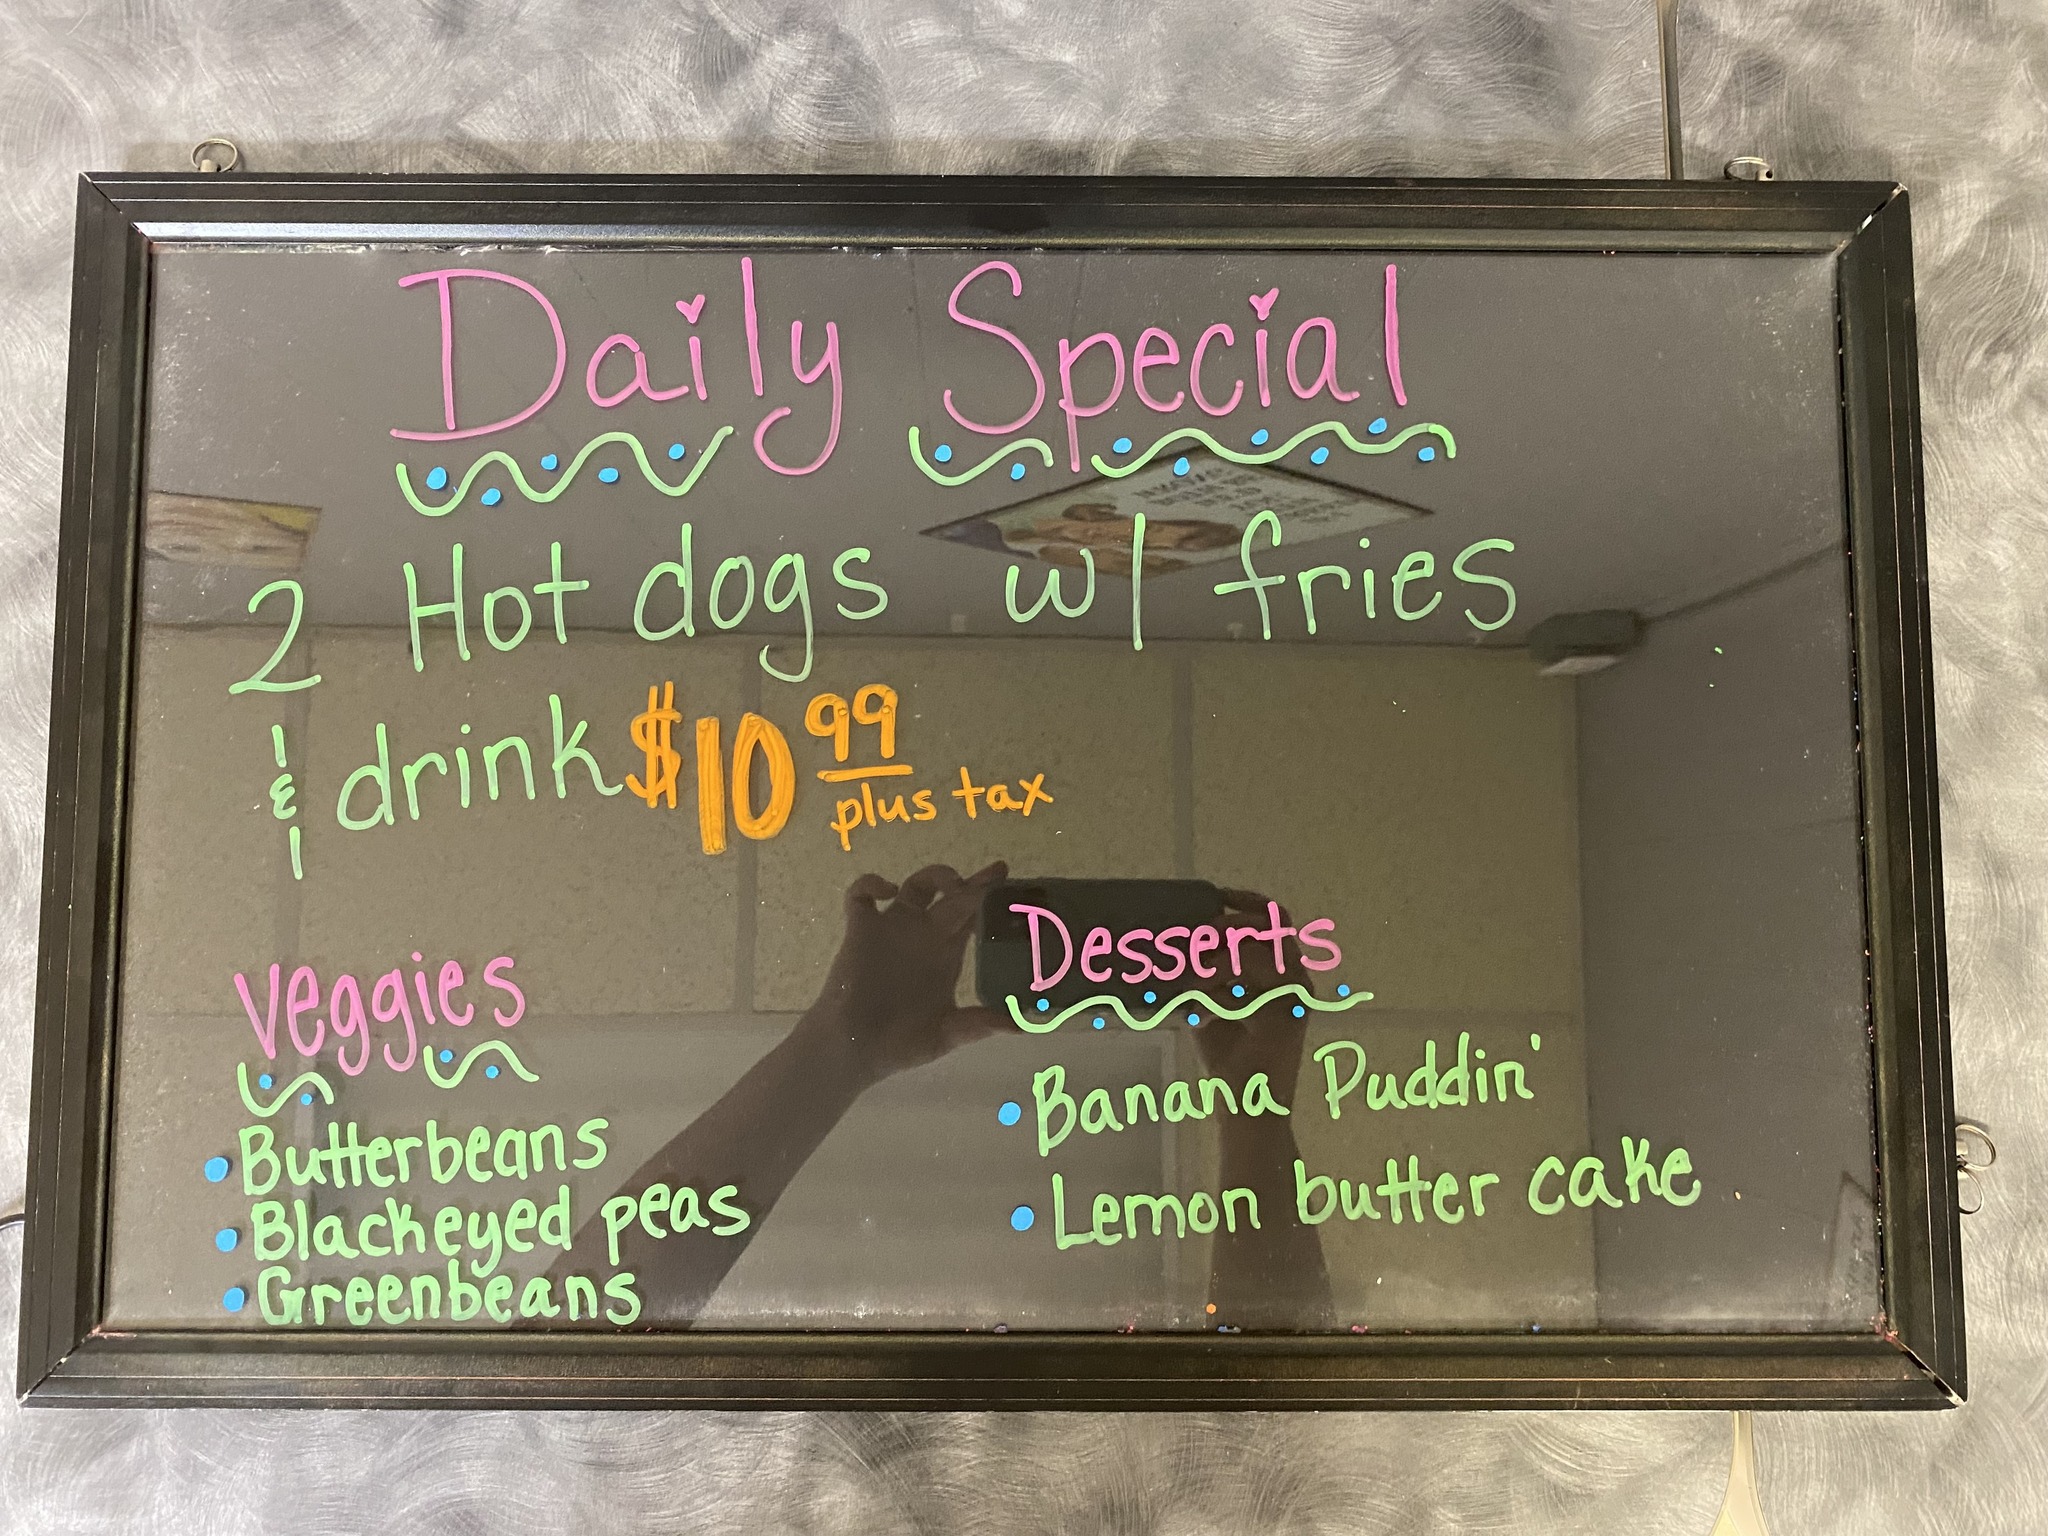 Daily Special
2 Hot dogs w/ fries
& drink $10 99
plus tax
Veggies
Butterbeans
Blackeyed peas
Greenbeans
Desserts
Banana Puddin'
Lemon butter cake